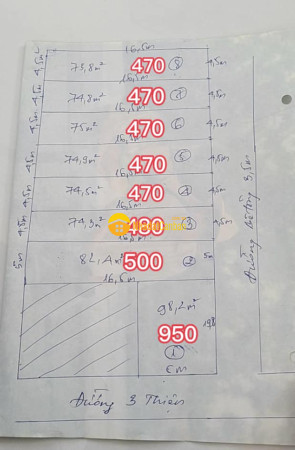 16,5m
4,5m 73,8m² 470 8 4,5m
16,5m
4,5m 74,8m² 470 7 4,5m
16,5m
4,5m 75m² 470 6 4,5m
4,5m 74,9m² 470 5 4,5m
4,5m 74,5m² 470 4 4,5m
16,5m
4,5m 74,3m² 480 3 4,5m
5m 82,4m² 500 2 5m
16,5m
98,2m²
950
1
Đường bê tông 3,5m
Đường 3 Thiên